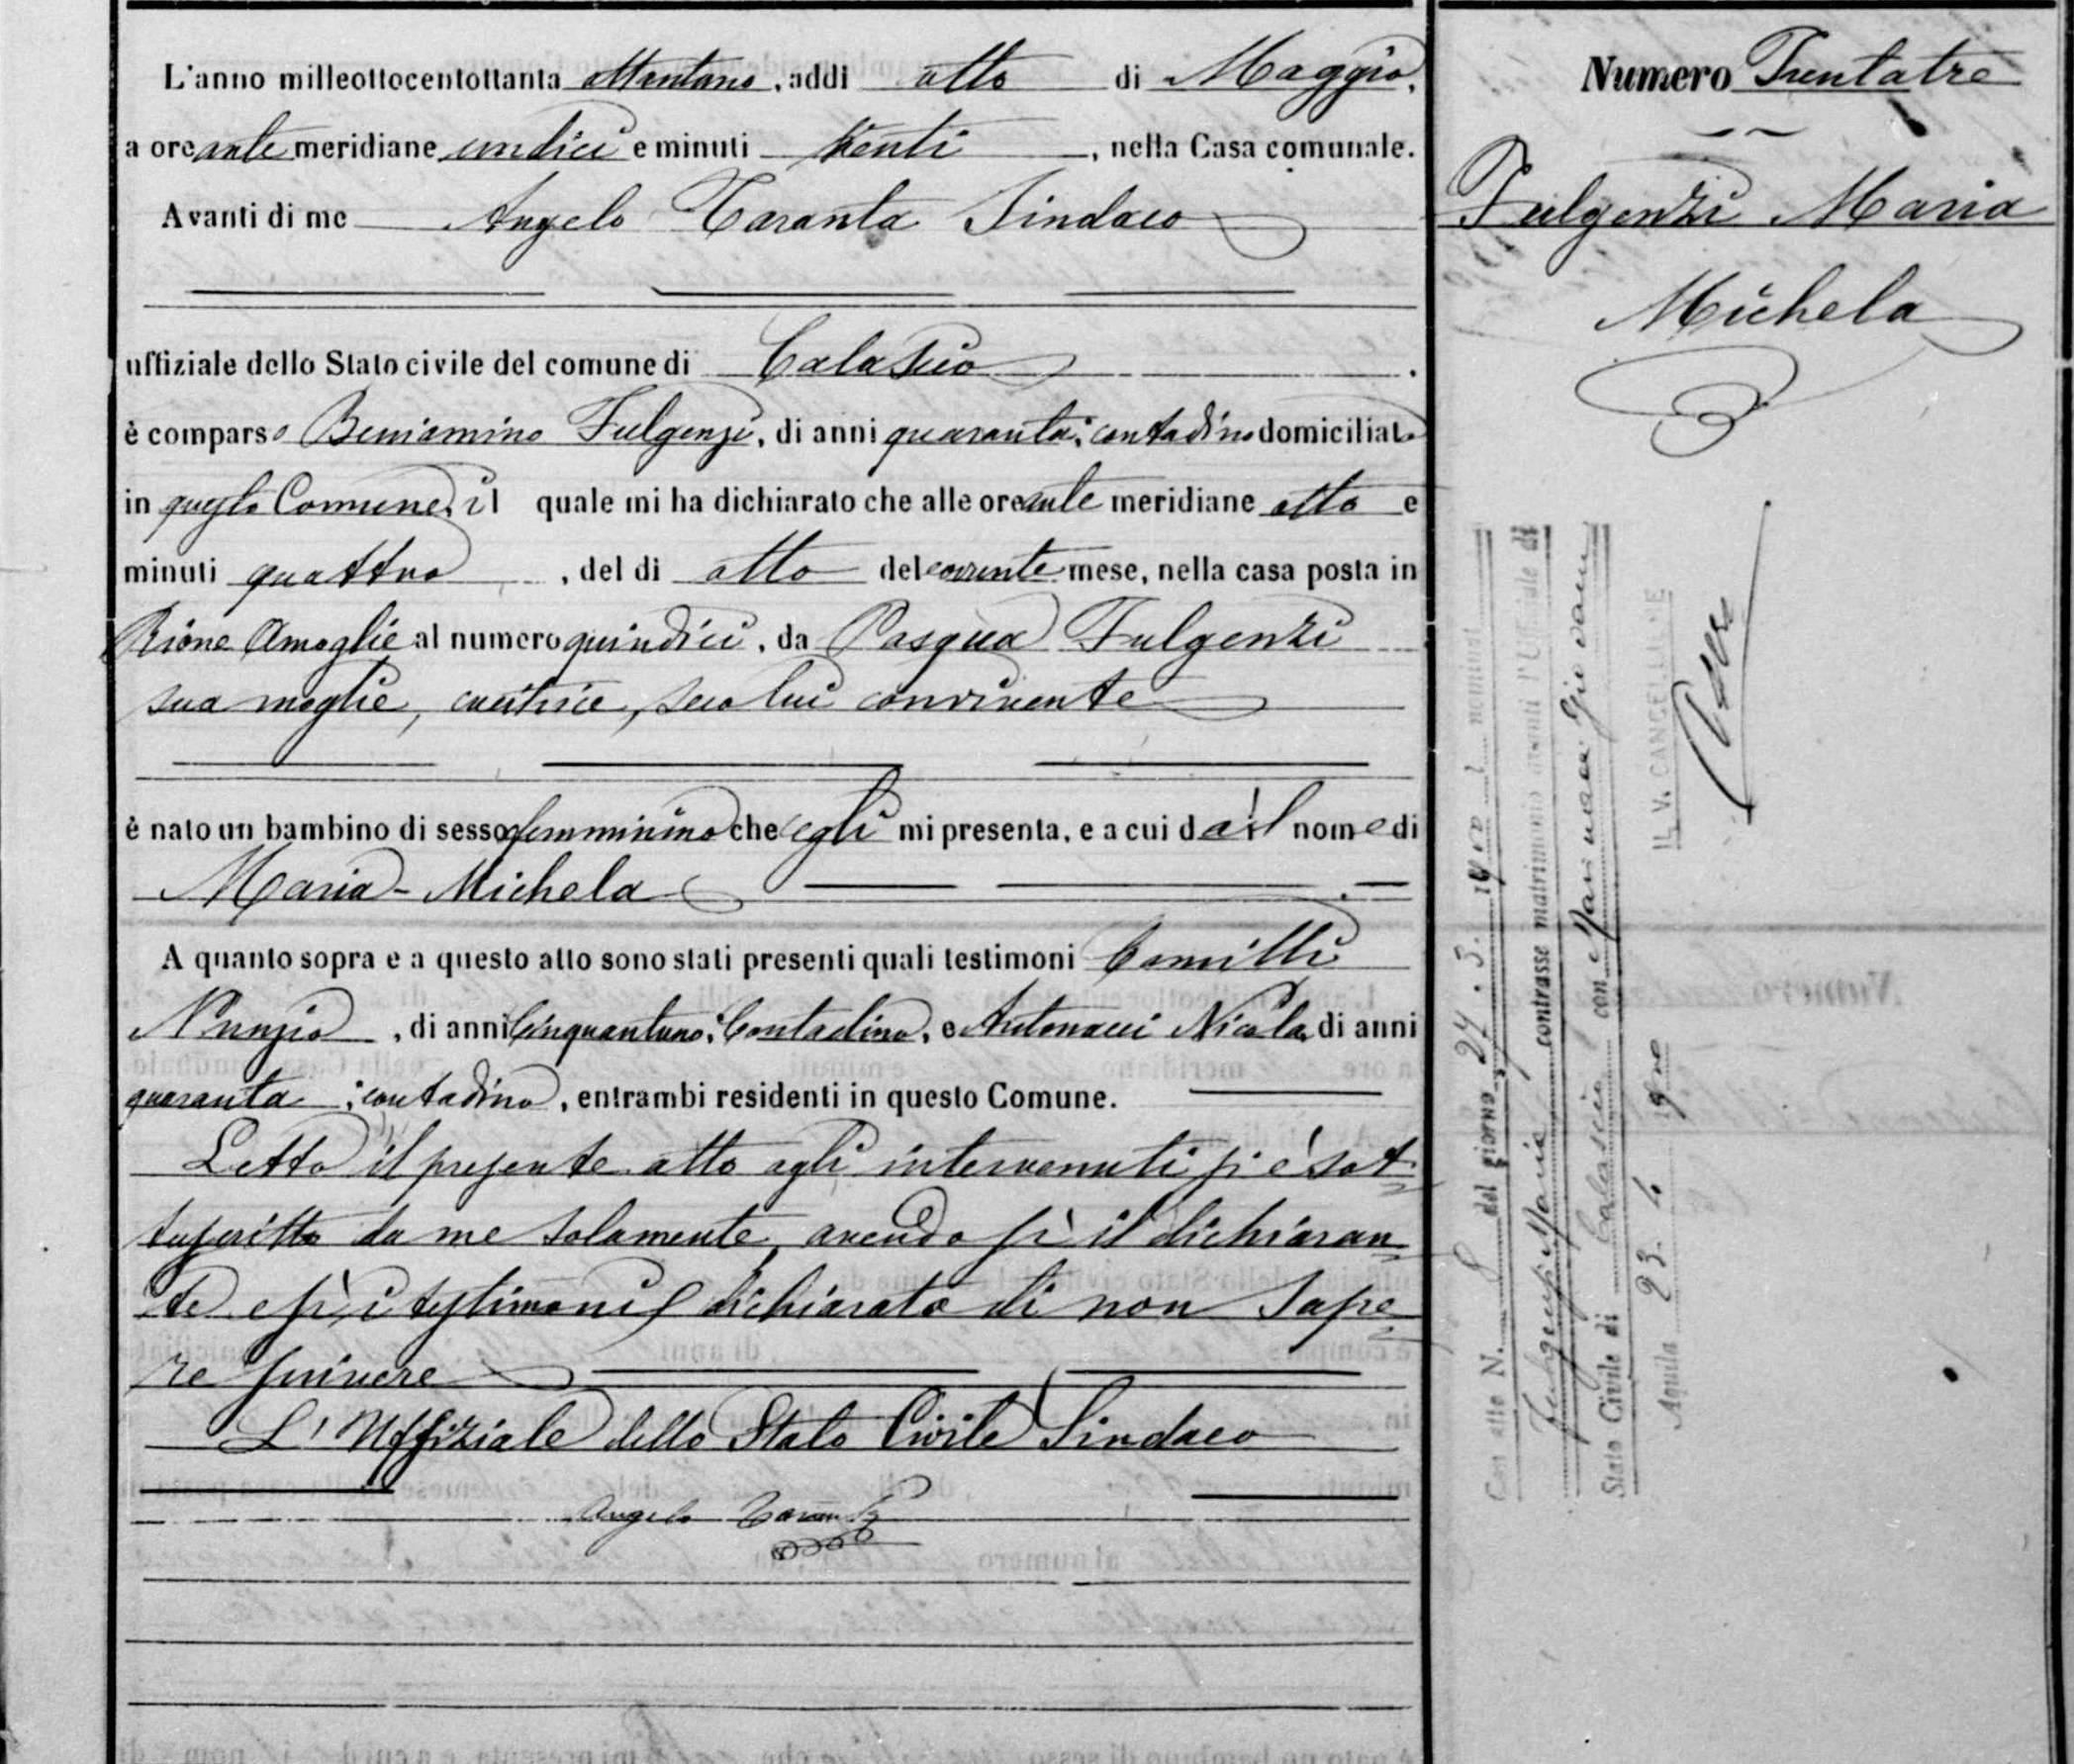 L'anno milleottocentottanta ottantuno, addi otto di Maggio,
a ore ante meridiane undici e minuti venti, nella Casa comunale.
Avanti di me Angelo Taranta Sindaco
uffiziale dello Stato civile del comune di Calascio.
è comparso Beniamino Fulgenzi, di anni quaranta, contadino domiciliato
in questo Comune, il quale mi ha dichiarato che alle ore ante meridiane otto e
minuti quattro, del di otto del corrente mese, nella casa posta in
Rione Amoglie al numero quindici, da Pasqua Fulgenzi
sua moglie, cucitrice, seco lui convivente
è nato un bambino di sesso femminino che egli mi presenta, e a cui dà il nome di
Maria-Michela
A quanto sopra e a questo atto sono stati presenti quali testimoni Camilli
Nunzio, di anni Cinquantuno, Contadino, e Antonacci Nicola, di anni
quaranta, contadino, entrambi residenti in questo Comune.
Letto il presente atto agli intervenuti si è sot
toscritto da me solamente, avendo sì il dichiaran
te e sì i testimoni dichiarato di non sape
re scrivere
L'Uffiziale dello Stato Civile Sindaco
Angelo Taranta
Numero Trentatre
Fulgenzi Maria
Michela
Con atto N. 8 del giorno 24.3.1900 l nominat
Fulgenzi Maria contrasse matrimonio avanti l'Uffiziale di
Stato Civile di Calascio con Marinacci Giovanni
Aquila 23.4.1900
IL V. CANCELLIERE